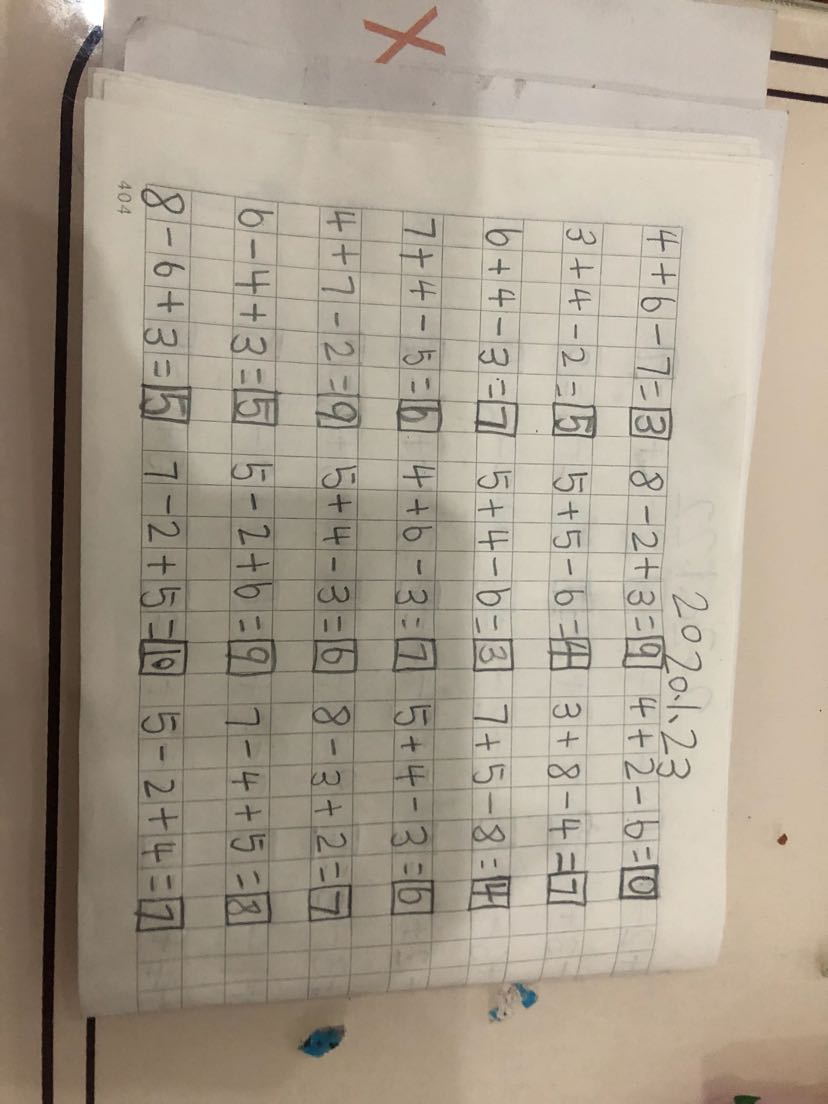 2020.1.23
4+6-7=3 8-2+3=9 4+2-6=0
3+4-2=5 5+5-6=4 3+8-4=7
6+4-3=7 5+4-6=3 7+5-8=4
7+4-5=6 4+6-3=7 5+4-3=6
4+7-2=9 5+4-3=6 8-3+2=7
6-4+3=5 5-2+6=9 7-4+5=8
8-6+3=5 7-2+5=10 5-2+4=7
404